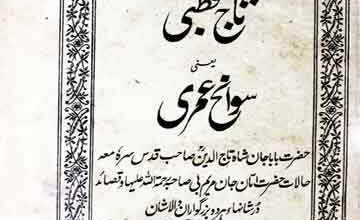 تاج قطبی
یعنی
سوانح عمری
حضرت بابا جان شاہ تاج الدین صاحب قدس سرہ معہ
حالات حضرت اماں جان مریم بی صاحبہ رحمۃ اللہ علیہا و قصائد
در شان ہر دو بزرگواران